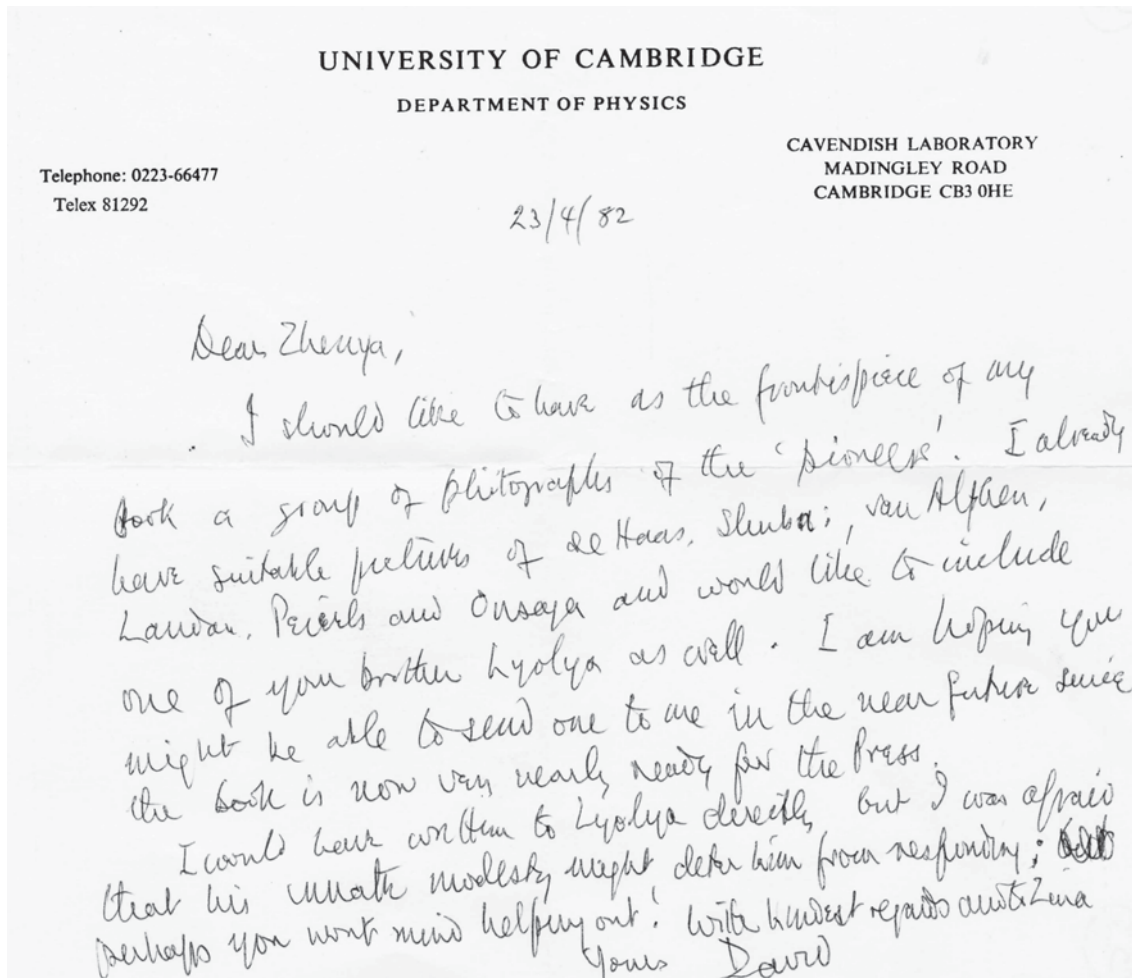 UNIVERSITY OF CAMBRIDGE
DEPARTMENT OF PHYSICS
CAVENDISH LABORATORY
MADINGLEY ROAD
CAMBRIDGE CB3 0HE
Telephone: 0223-66477
Telex 81292
23/4/82
Dear Zhenya,
I should like to have as the frontispiece of my
book a group of photographs of the 'pioneers'. I already
have suitable pictures of de Haas, van Alphen,
Landau, Peierls and Onsager and would like to include
one of your brother Lyolya as well. I am hoping you
might be able to send one to me in the near future since
the book is now very nearly ready for the Press.
I would have written to Lyolya directly but I was afraid
that his innate modesty might deter him from responding;
perhaps you wont mind helping out! With kindest regards Zina
Yours David